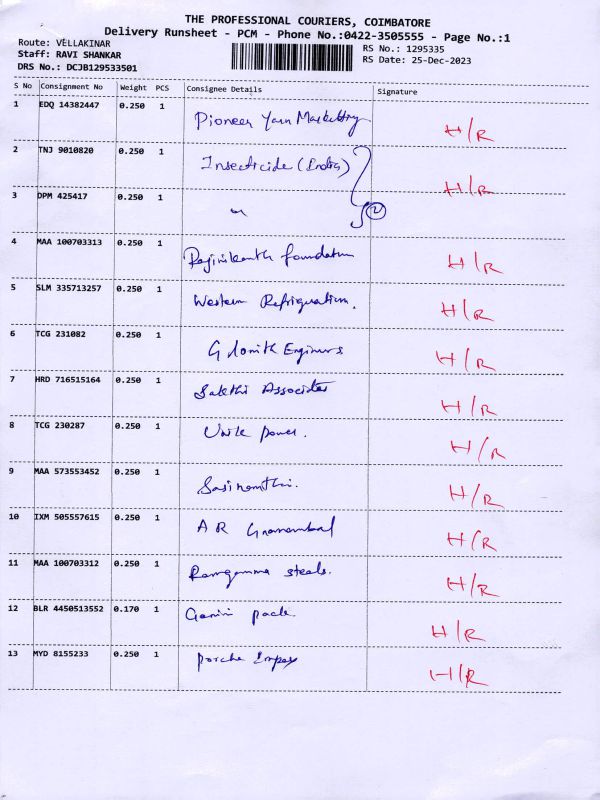 THE PROFESSIONAL COURIERS, COIMBATORE
Delivery Runsheet - PCM - Phone No.:0422-3505555 - Page No.:1
Route: VELLAKINAR
Staff: RAVI SHANKAR
DRS No.: DCJB129533501
RS No.: 1295335
RS Date: 25-Dec-2023
S No Consignment No Weight PCS Consignee Details Signature
1 EDQ 14382447 0.250 1 Pioneer Yarn Marketing H/R
2 TNJ 9010820 0.250 1 Insecticide (India) H/R
3 DPM 425417 0.250 1 " 2
4 MAA 100703313 0.250 1 Rajinikanth foundation H/R
5 SLM 335713257 0.250 1 Western Refrigeration. H/R
6 TCG 231082 0.250 1 Engineers H/R
7 HRD 716515164 0.250 1 Sakthi Associates H/R
8 TCG 230287 0.250 1 power. H/R
9 MAA 573553452 0.250 1 H/R
10 IXM 505557615 0.250 1 A R Gnanambal H/R
11 MAA 100703312 0.250 1 steels. H/R
12 BLR 4450513552 0.170 1 pack. H/R
13 MYD 8155233 0.250 1 Porche Impex H/R